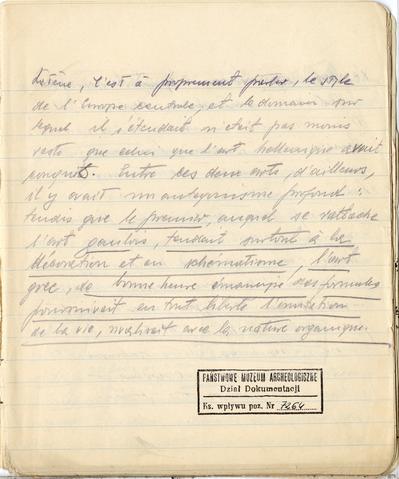 Latène, c'est à proprement parler, le style
de l'Europe centrale, et le domaine sur
lequel il s'étendait n'était pas moins
vaste que celui que l'art hellénique avait
conquis. Entre ces deux arts, d'ailleurs,
il y avait un antagonisme profond :
tandis que le premier, auquel se rattache
l'art gaulois, tendait surtout à la
décoration et au schématisme, l'art
grec, de bonne heure émancipé des formules
poursuivait en tout liberté l'imitation
de la vie, avec la nature organique.
PAŃSTWOWE MUZEUM ARCHEOLOGICZNE
Dział Dokumentacji
Ks. wpływu poz. Nr 7264